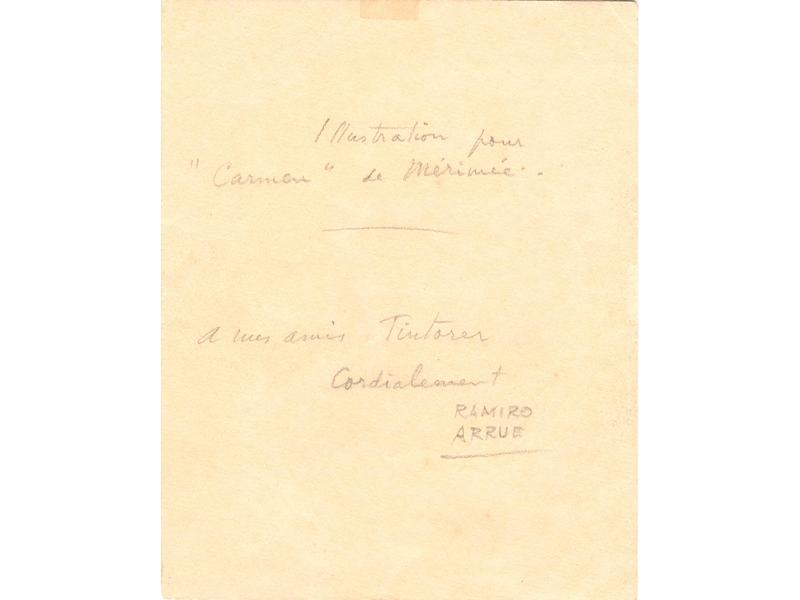 Illustration pour
"Carmen" de Mérimée.
A mes amis Tintorer
Cordialement
RAMIRO
ARRUE